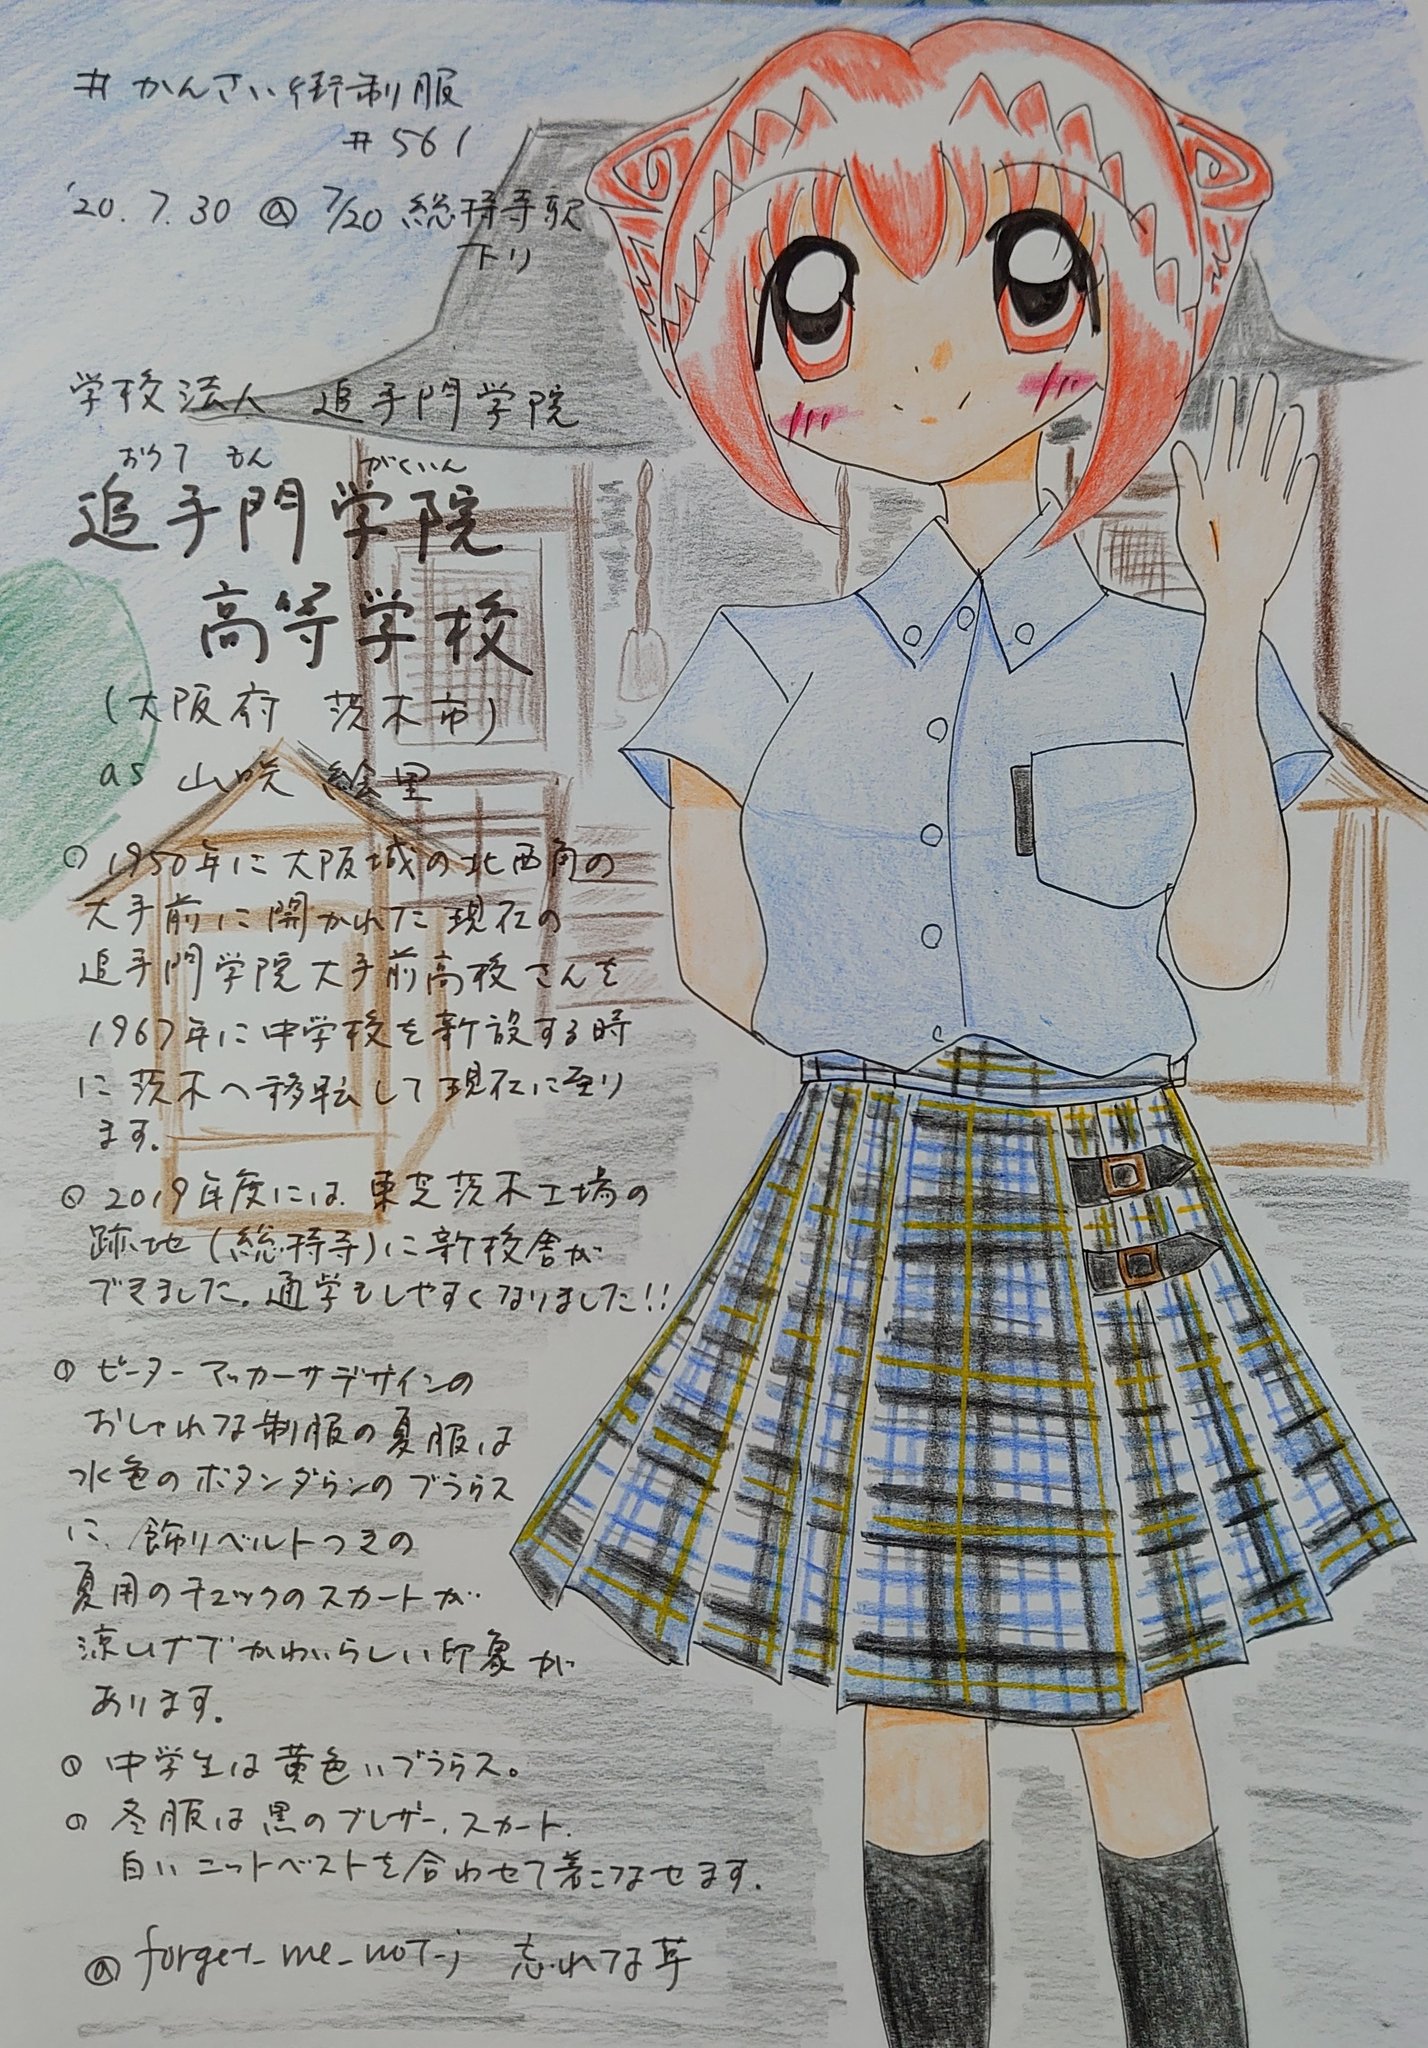 #かんさい街制服
#561
'20.7.30 @ 7/20 総持寺駅
下り
学校法人 追手門学院
おうてもん がくいん
追手門学院
高等学校
(大阪府 茨木市)
as 山咲 絵里
1950年に大阪城の北西角の
大手前に開かれた現在の
追手門学院大手前高校さんを
1967年に中学校を新設する時
に茨木へ移転して現在に至り
ます。
2019年度には、東芝茨木工場の
跡地(総持寺)に新校舎が
できました。通学もしやすくなりました!!
ピーターマッカーサデザインの
おしゃれな制服の夏服は
水色のボタンダウンのブラウス
に、飾りベルトつきの
夏用のチェックのスカートが
涼しげでかわいらしい印象が
あります。
中学生は黄色いブラウス。
冬服は黒のブレザー、スカート、
白いニットベストを合わせて着こなせます。
@forget_me_not_j 忘れな草